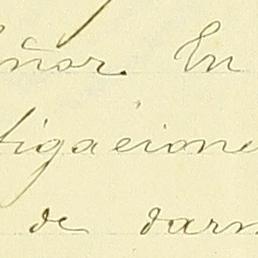 eñor. En
tigacione
de darm